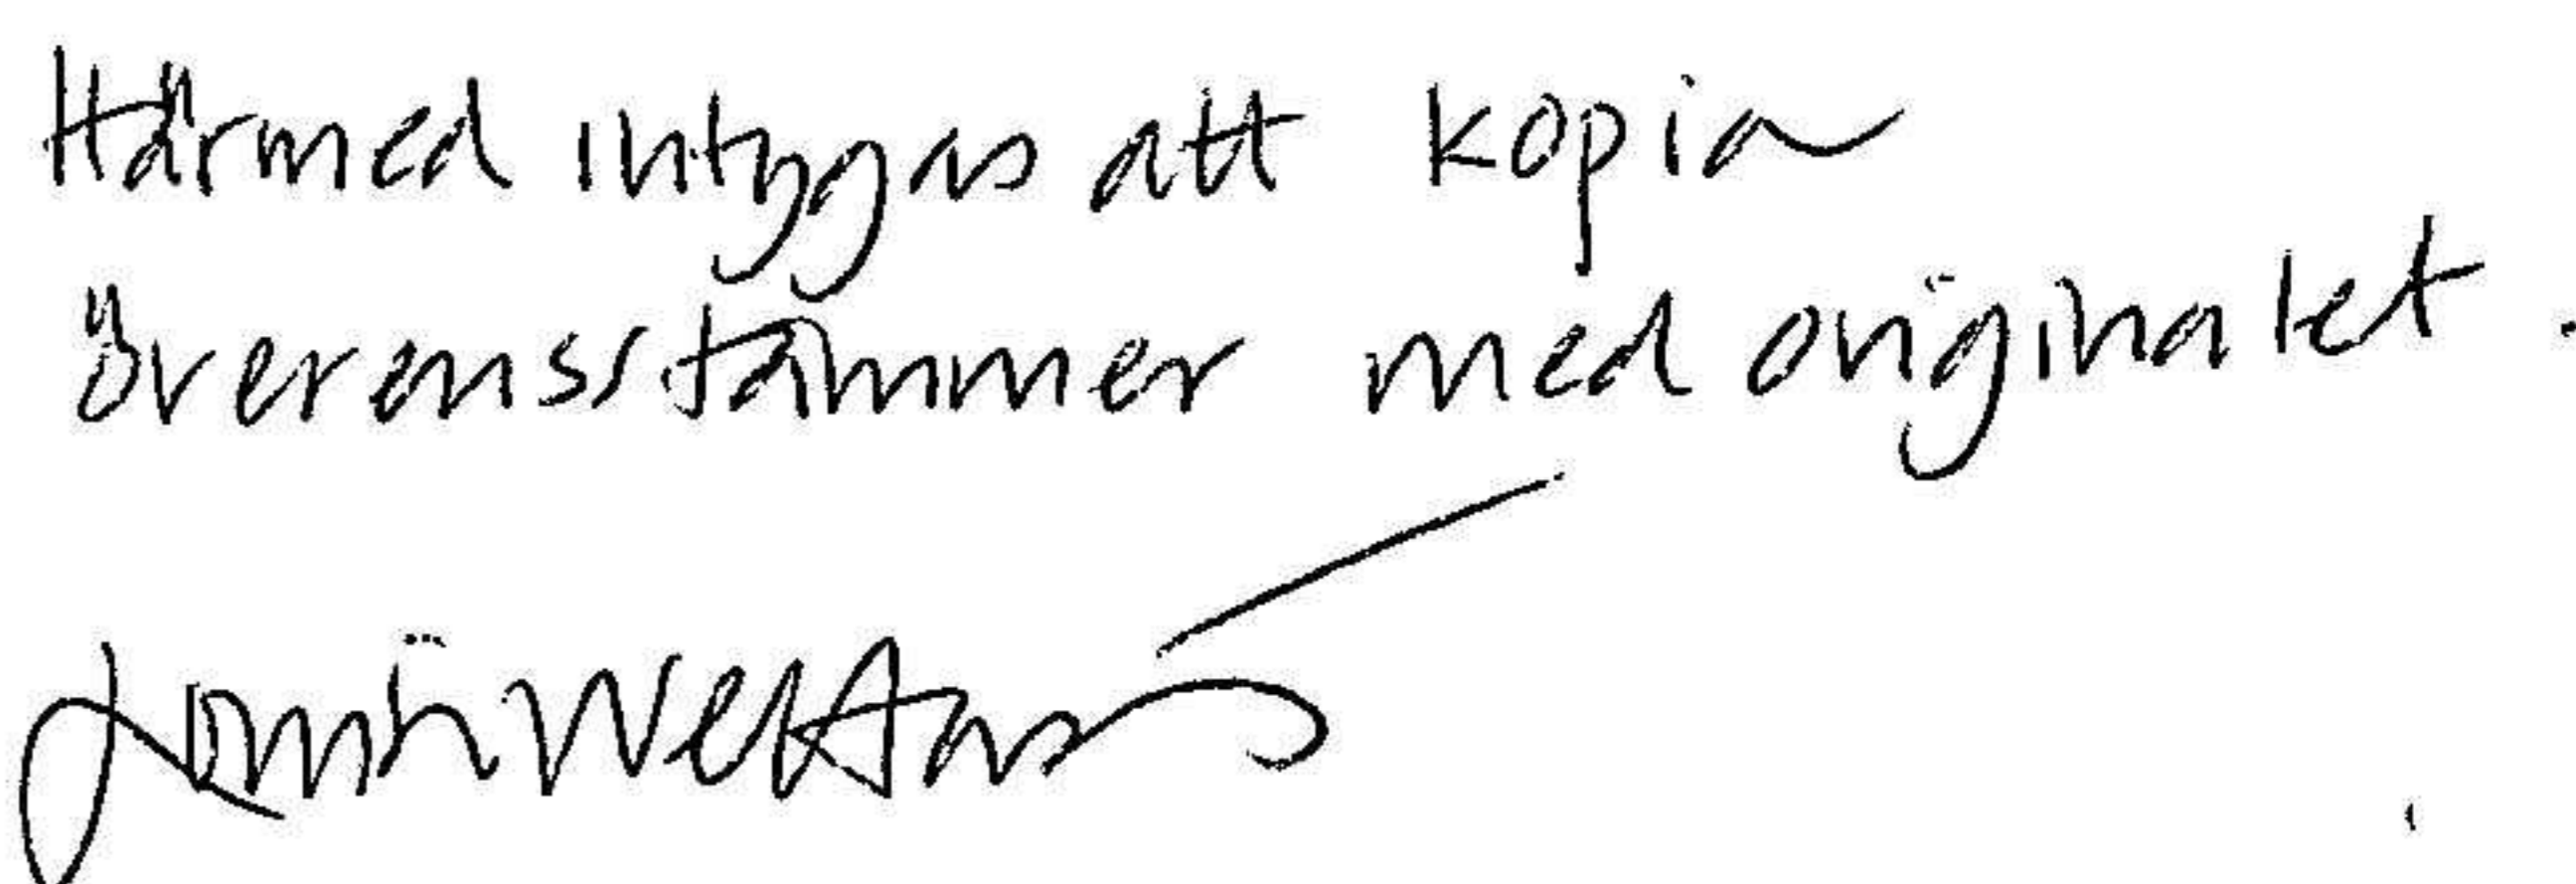 Härmed intygas att kopia
överensstämmer med originalet.